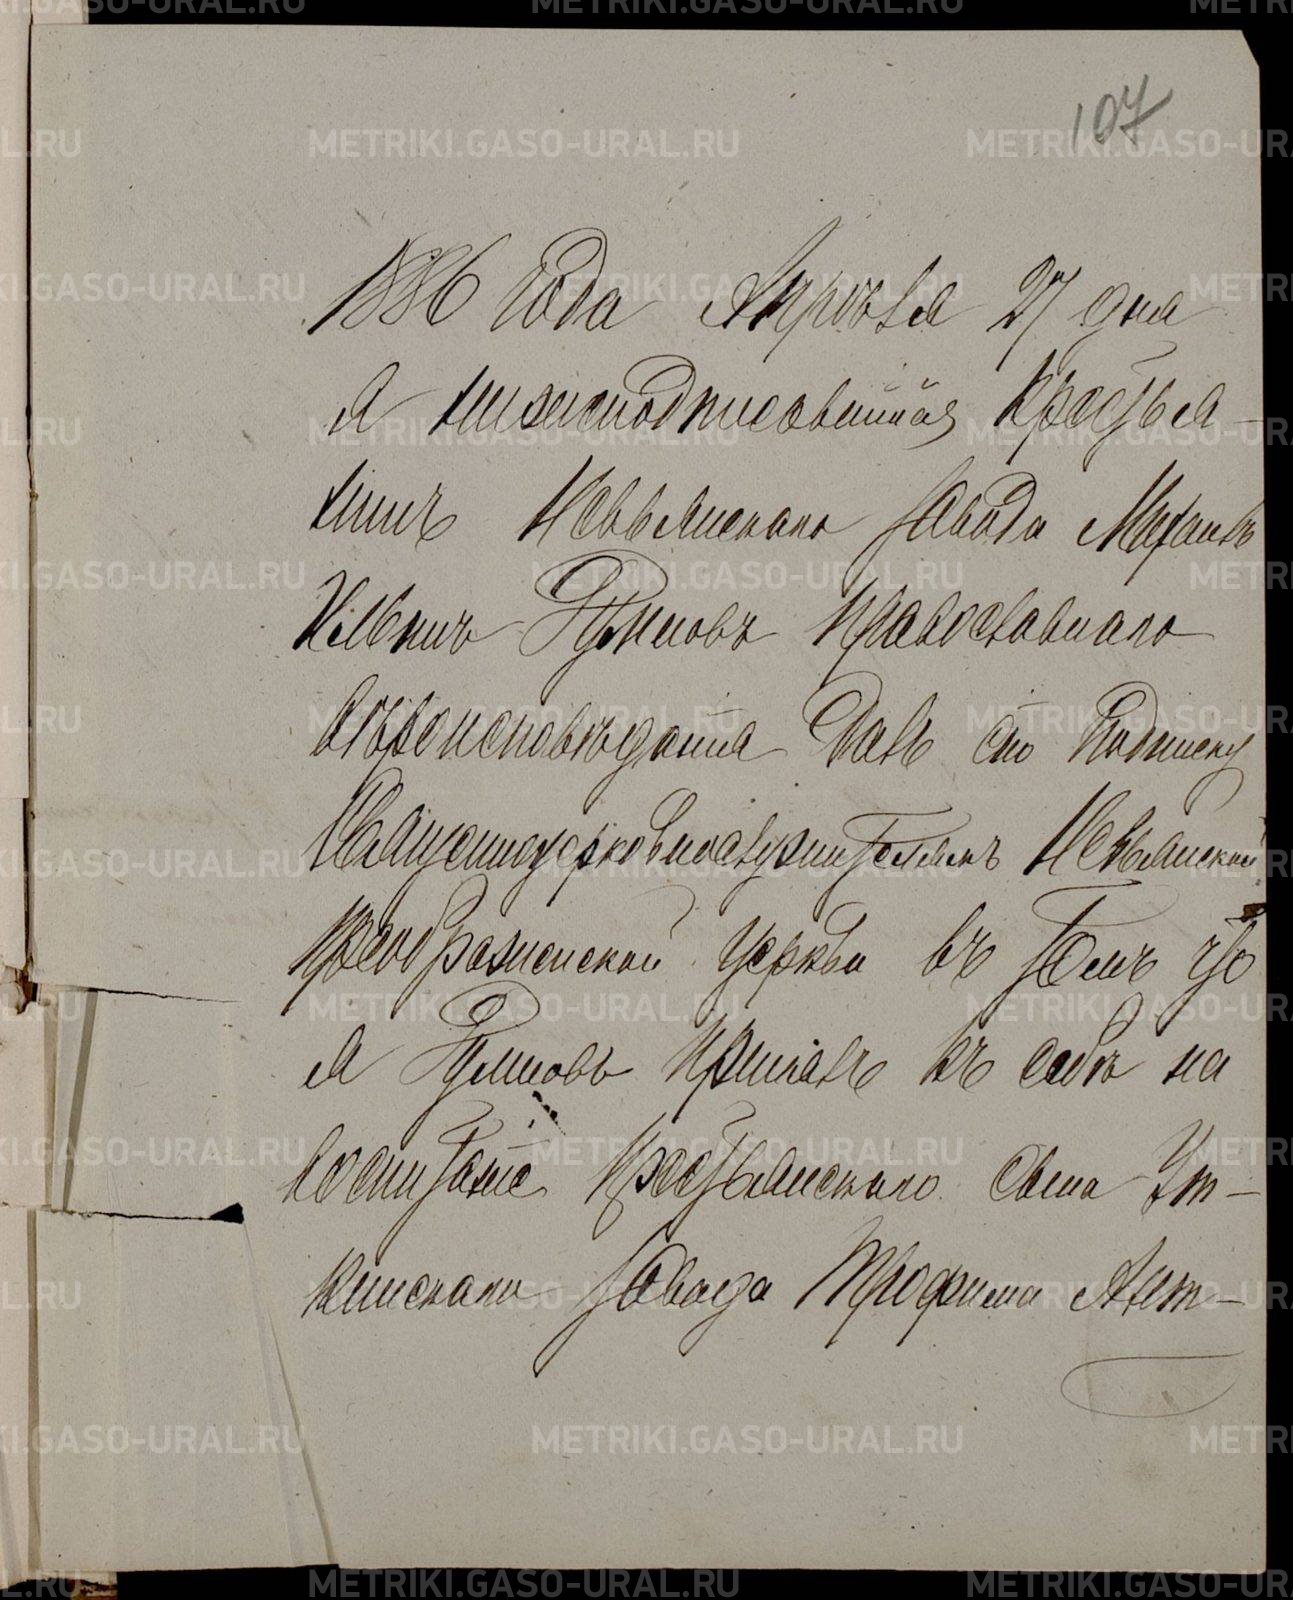 107
1886 года Апрѣля 27 дня
я нижеподписавшійся Крестья-
нинъ Невьянскаго завода Михаилъ
Ильичъ Румновъ Православнаго
вѣроисповѣданія далъ сію подписку
Священноцерковнослужителямъ Невьянской
Преображенской церкви въ томъ что
я Принялъ къ себѣ на
воспитаніе Крестьянскаго сына Ут-
кинскаго завода Трофима
METRIKI.GASO-URAL.RU